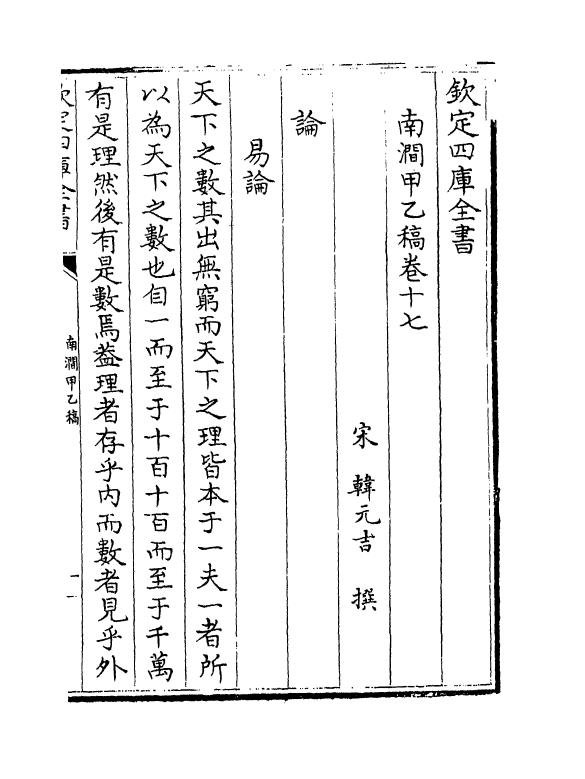 欽定四庫全書
南澗甲乙稿卷十七
宋 韓元吉 撰
論
易論
天下之數其出無窮而天下之理皆本于一夫一者所
以為天下之數也自一而至于十百十百而至于千萬
有是理然後有是數焉葢理者存乎内而數者見乎外
欽定四庫全書
南澗甲乙稿
一